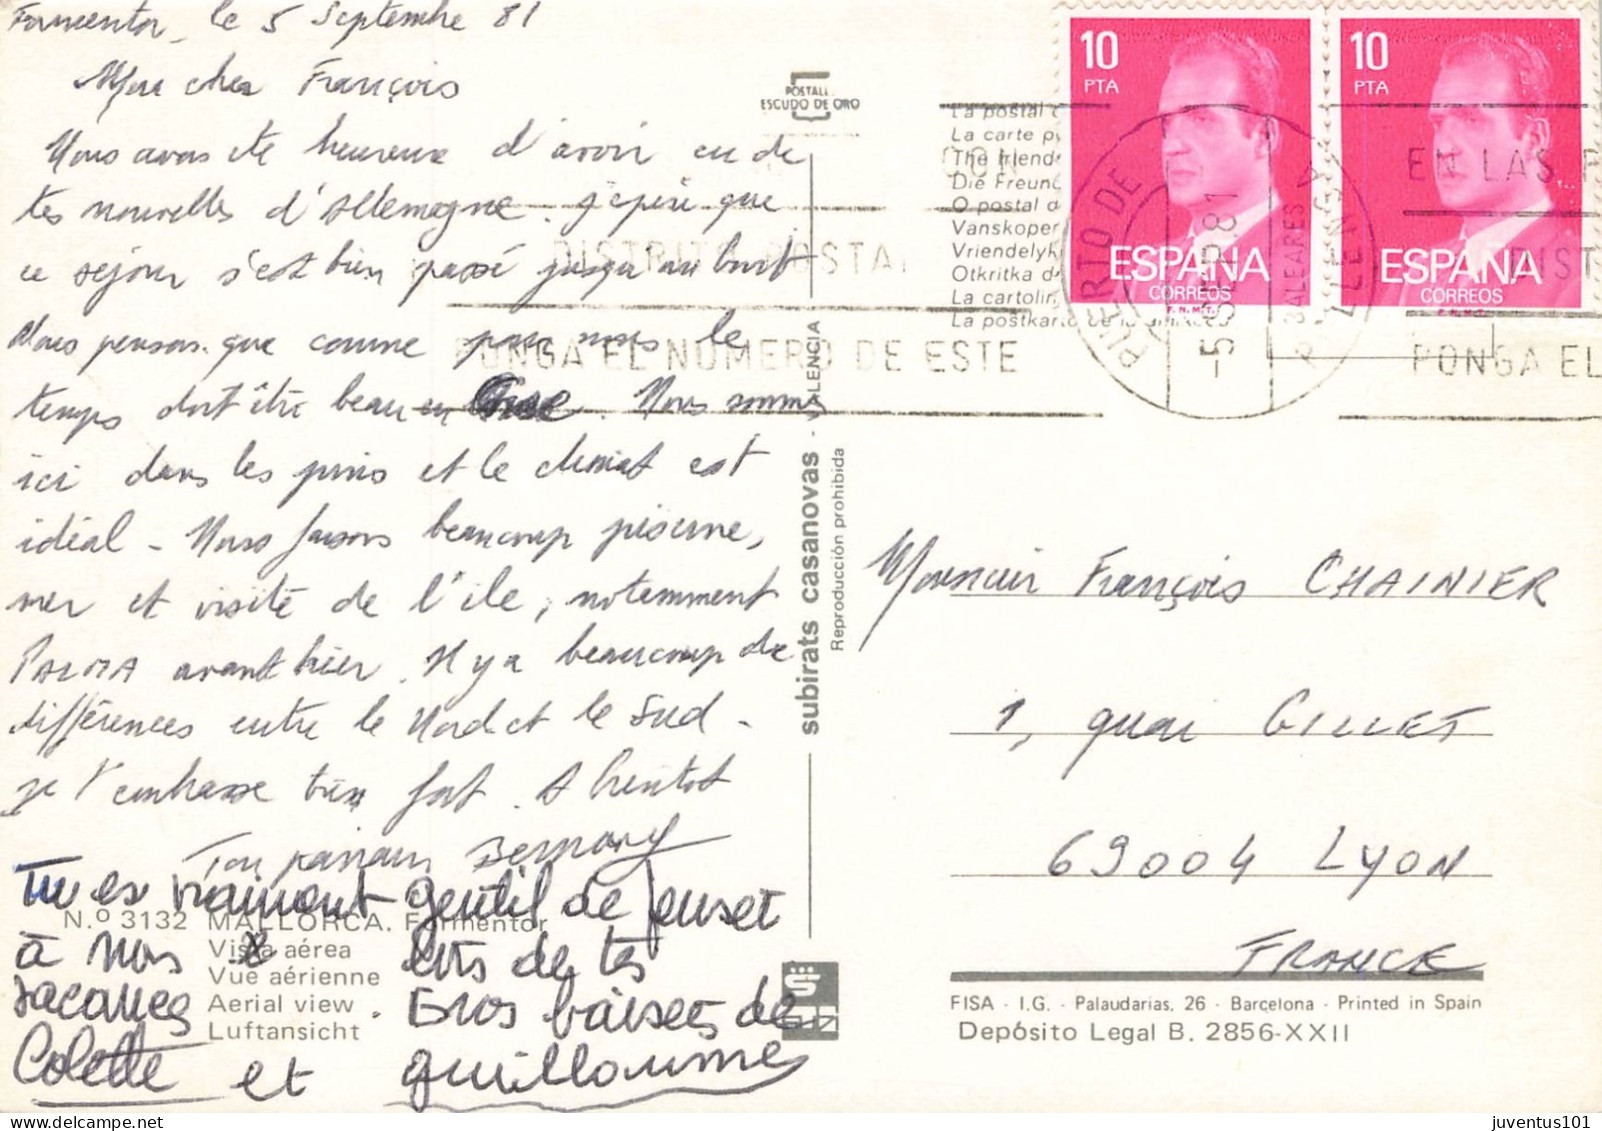 Formentor, le 5 Septembre 81
Mon cher François
Nous avons été heureux d'avoir eu de
tes nouvelles d'Allemagne. J'espère que
ce séjour s'est bien passé jusqu'au bout
Nous pensons que comme pour nous le
temps doit être beau en. Nous sommes
ici dans les pins et le climat est
idéal - Nous faisons beaucoup piscine,
mer et visite de l'île, notamment
PALMA avant hier. Il y a beaucoup de
différences entre le Nord et le Sud -
Je t'embrasse bien fort. A bientôt
Ton parrain Bernard
Tu es vraiment gentil de penser
à nous lors de tes
vacances. Gros baisers de
Colette et Guillaume
N.º 3132 MALLORCA. Formentor
Vista aérea
Vue aérienne
Aerial view
Luftansicht
POSTAL
ESCUDO DE ORO
subirats casanovas - VALENCIA
Reproducción prohibida
La postal
La carte
The friend
Die Freun
O postal d
Vanskoper
Vriendelyk
Otkritka d
La cartolin
La postkarto de la
10
PTA
ESPAÑA
CORREOS
F.N.M.T.
10
PTA
ESPAÑA
CORREOS
F.N.M.T.
PUERTO DE POLLENSA
-5 SEP 81
BALEARES
CON
DISTRITO POSTAL
PONGA EL NUMERO DE ESTE
EN LAS P
DIST
PONGA EL
Monsieur François CHAINIER
1, quai GILLET
69004 LYON
FRANCE
FISA - I.G. - Palaudarias, 26 - Barcelona - Printed in Spain
Depósito Legal B. 2856-XXII
juventus101